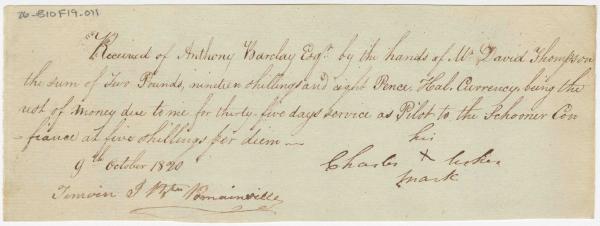 26-B10F19-011
Received of Anthony Barclay Esqr. by the hands of Mr David Thompson
the sum of Two Pounds, nineteen shillings and eight Pence, Hal. Currency, being the
rest of money due to me for thirty-five days service as Pilot to the Schooner Con
-fiance at five shillings per diem
his
Charles X
mark
9th October 1820
Temoin J Bte Romainville